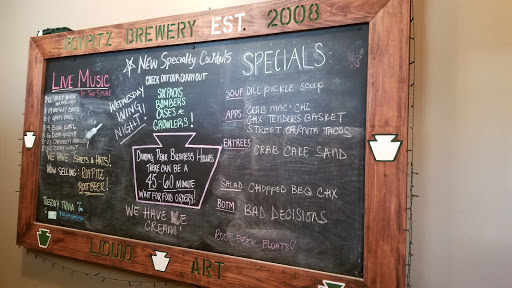 ROYPITZ BREWERY EST. 2008
LIVE MUSIC
IN THE
WE HAVE SHIRTS & HATS!
NOW SELLING: ROYPITZ
ROOT BEER!
TUESDAY TRIVIA
New Specialty Cocktails
CHECK OUT OUR CARRY OUT
SIX PACKS
BOMBERS
CASES &
GROWLERS!
WEDNESDAY
WING
NIGHT!
DURING PEAK BUSINESS HOURS
THERE CAN BE A
45-60 MINUTE
WAIT FOR FOOD ORDERS!
WE HAVE ICE
CREAM!
SPECIALS:
SOUP DILL PICKLE SOUP
APPS CRAB MAC CHZ
CHX TENDERS BASKET
STREET TACOS
ENTREES CRAB CAKE SAND
SALAD CHOPPED BBQ CHX
BOTM BAD DECISIONS
ROOT BEER FLOATS!
LIQUID ART